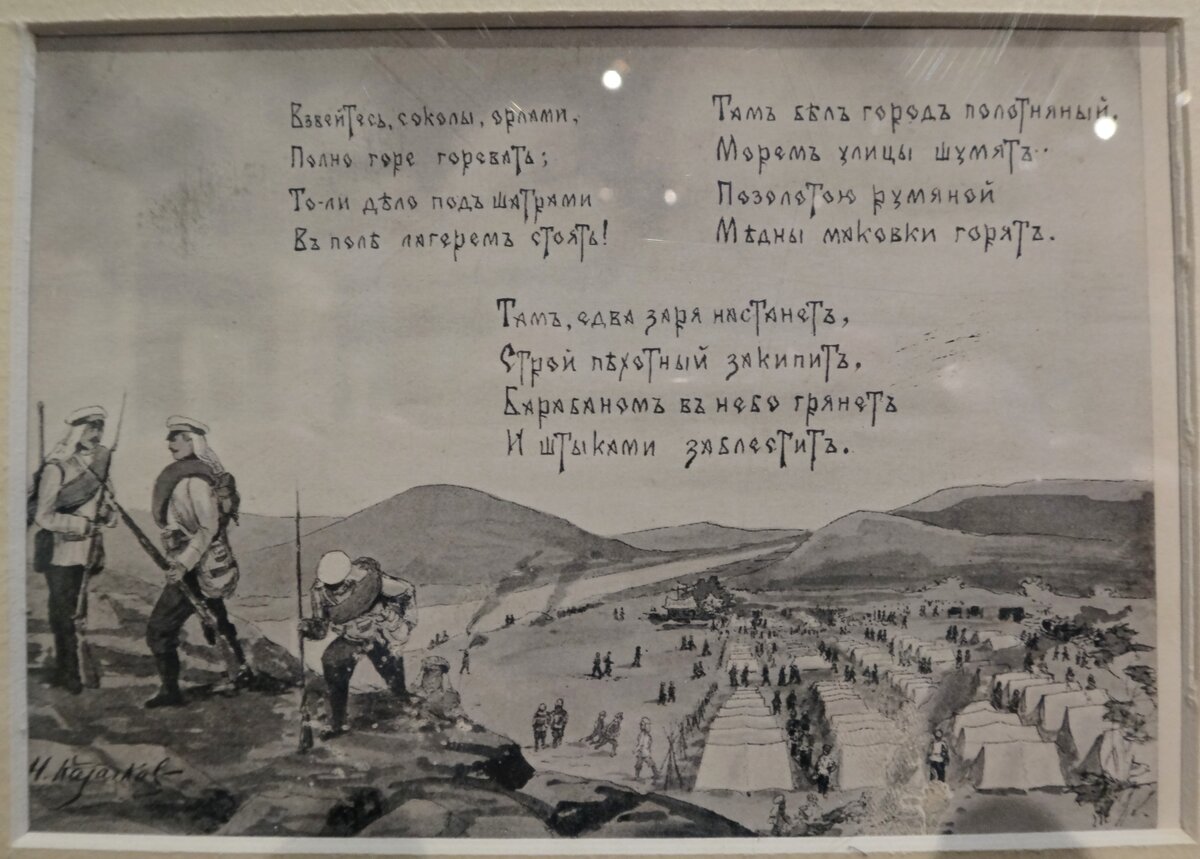 Взвейтесь, соколы, орлами,
Полно горе горевать;
То-ли дѣло подъ шатрами
Въ полѣ лагеремъ стоять!
Тамъ бѣлъ городъ полотняный,
Моремъ улицы шумятъ..
Позолотою румяной
Мѣдны маковки горятъ.
Тамъ, едва заря настанетъ,
Строй пѣхотный закипитъ,
Барабаномъ въ небо грянетъ
И штыками заблеститъ.